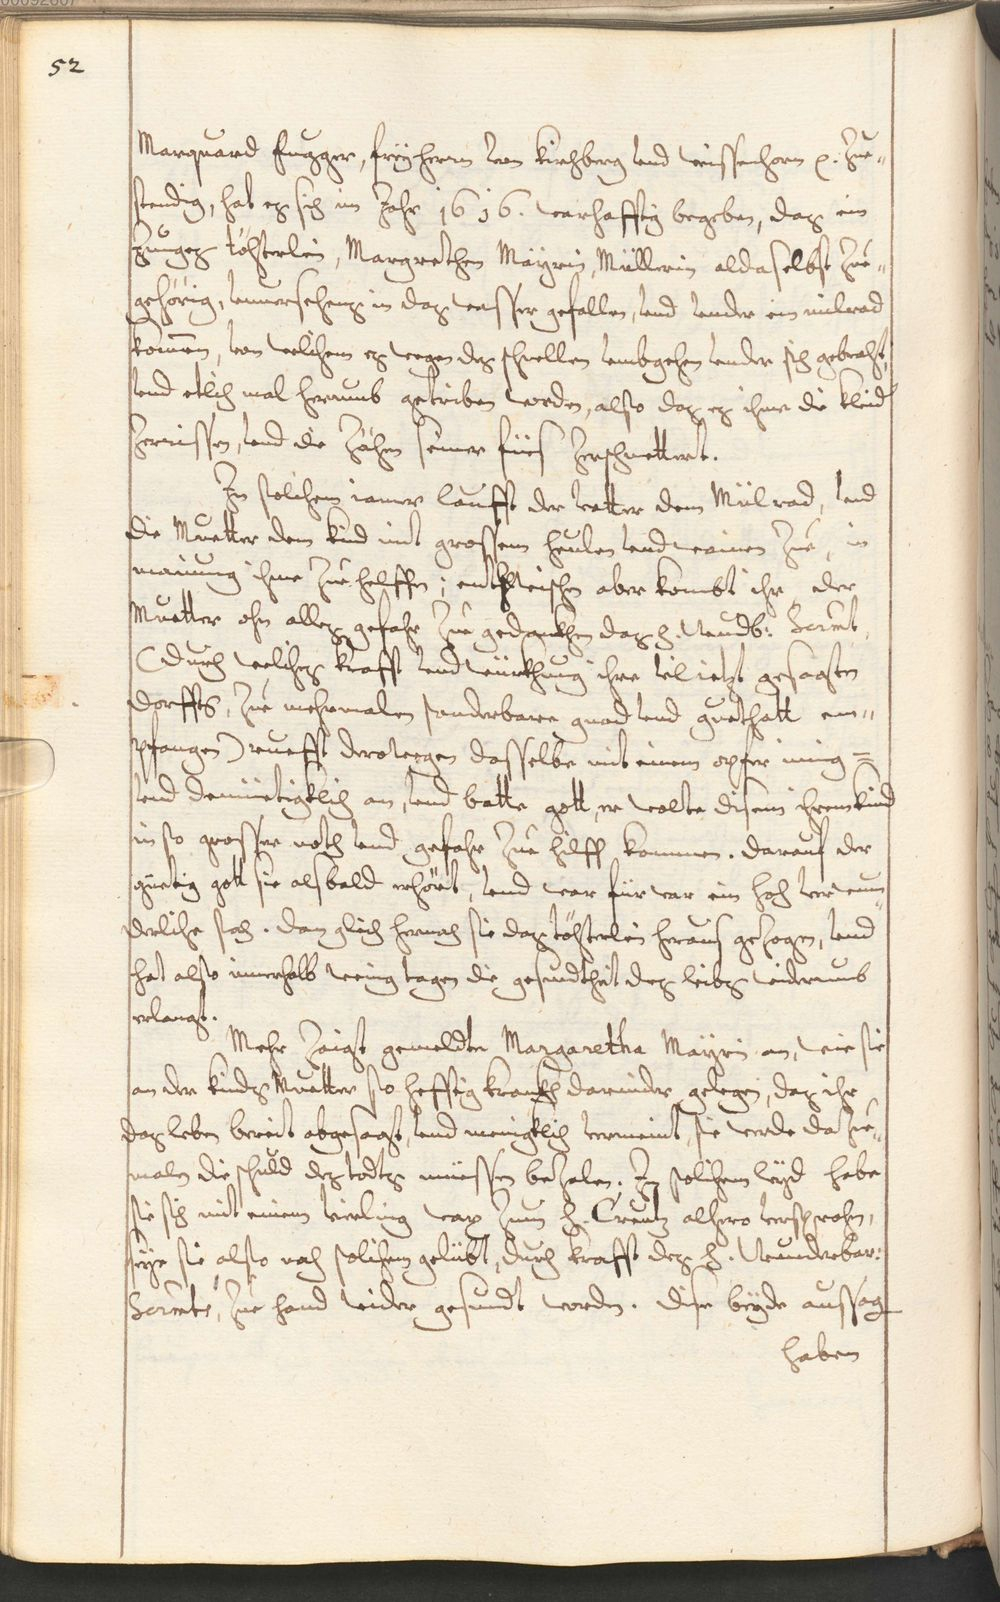 52
Marquard Fugger, Freyherrn von Kirchberg vnd Weissenhorn ꝛc. zue-
stendig, hat es sich im Jahr 1616. warhafftig begeben, das ein
Junges töchterlein, Margrethen Mäyrin, Müllerin aldaselbst zue-
gehörig, vnuersehens in das wasser gefallen, vnd vnder ein mülrad
kommen, von welichem es wegen des schnellen vmbgehen vnder sich gebracht,
vnd etlich mal herumb getriben worden, also das es ihme die kleid
zerrissen, vnd die Zähen seiner füeß zerschmettert.
In solichem iamer laufft der vatter dem Mülrad, vnd
die Muetter dem kind mit grossem heulen vnd wainen zue, in
mainung ihme zue helffen; entzwischen aber kombt ihr, der
Muetter ohn alles gefahr zue gedancken das H. Wundb: Sacrament,
(durch weliches krafft vnd würckhung ihre vil ietzt gesagten
Dorffs, zue mehrmalen sonderbare gnad vnd guethatt em-
pfangen) rueffet derowegen dasselbe mit einem opfer innig=
vnd demüetigklich an, vnd batte gott, er wolte disem ihrem kind
in so grosser noth vnd gefahr zue hilff kommen. Darauf der
güetig gott sie alsbald erhört, vnd war für war ein hoch verwun-
derliche sach. Dan gleich hernach sie das töchterlein heraus gezogen, vnd
hat also innerhalb wenig tagen die gesundtheit des leibs widerumb
erlangt.
Mehr zaigt gemeldte Margaretha Mäyrin an, wie sie
an der kinds Muetter so hefftig kranck darnider gelegen, das ihr
das leben bereit abgesagt, vnd menigklich vermeint, sie werde da zue-
malen die schuld des todts müessen bezalen. In solichem leyd habe
sie sich mit einem vierling wax zum H. Creutz alhero versprochen,
seye sie also nach solichem gelübt, durch krafft des H. Wunderbar:
Sacraments, zue hand wider gesundt worden. Dise beyde aussag
haben